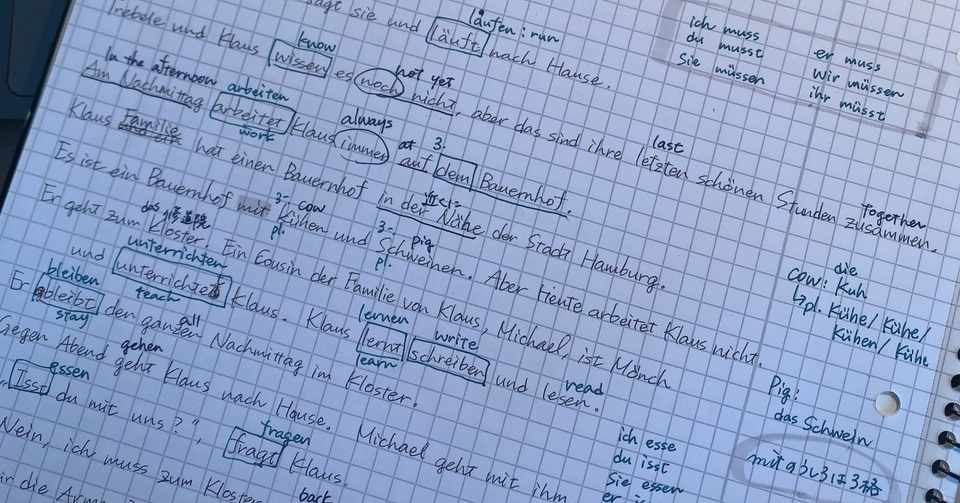 sagt sie und läuft nach Hause.
läufen : run
Trebele und Klaus wissen es noch nicht, aber das sind ihre letzten schönen Stunden zusammen.
know
not yet
last
together
Am Nachmittag arbeitet Klaus immer auf dem Bauernhof.
In the afternoon
arbeiten
work
always
at
3.
Klaus Familie hat einen Bauernhof in der Nähe der Stadt Hamburg.
近くに
Es ist ein Bauernhof mit Kühen und Schweinen. Aber Heute arbeitet Klaus nicht.
3- cow
pl.
3- pig
pl.
Er geht zum Kloster. Ein Cousin der Familie von Klaus, Michael, ist Mönch
das 修道院
und unterrichtet Klaus. Klaus lernt schreiben und lesen.
unterrichten
teach
lernen
learn
write
read
Er bleibt den ganzen Nachmittag im Kloster.
bleiben
stay
all
Gegen Abend geht Klaus nach Hause. Michael geht mit ihm
gehen
„Isst du mit uns?", fragt Klaus.
essen
fragen
Nein, ich muss zum Kloster
back
die Arme
ich muss
du musst
Sie müssen
er muss
wir müssen
ihr müsst
die
cow: Kuh
pl. Kühe/ Kühe/
Kühen/ Kühe
Pig:
das Schwein
mitのうしろは3格
ich esse
du isst
Sie essen